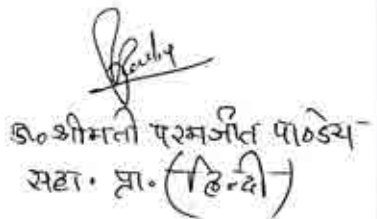 डॉ० श्रीमती परमजीत पाण्डेय
सहा. प्रा. (हिन्दी)